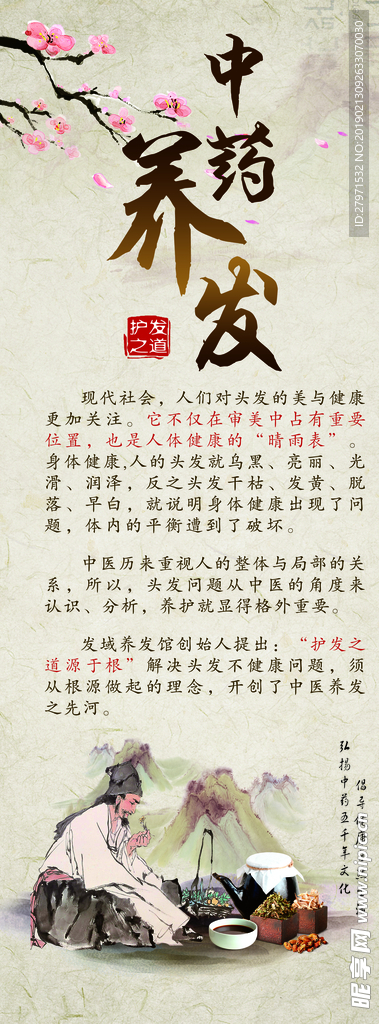 中药
养发
护发
之道
现代社会，人们对头发的美与健康
更加关注。它不仅在审美中占有重要
位置，也是人体健康的“晴雨表”。
身体健康,人的头发就乌黑、亮丽、光
滑、润泽，反之头发干枯、发黄、脱
落、早白，就说明身体健康出现了问
题，体内的平衡遭到了破坏。
中医历来重视人的整体与局部的关
系，所以，头发问题从中医的角度来
认识、分析，养护就显得格外重要。
发域养发馆创始人提出：“护发之
道源于根”解决头发不健康问题，须
从根源做起的理念，开创了中医养发
之先河。
弘扬中药五千年文化
倡导健康
ID:27971532 NO:20190213092633070030
昵享网 www.nipic.cn